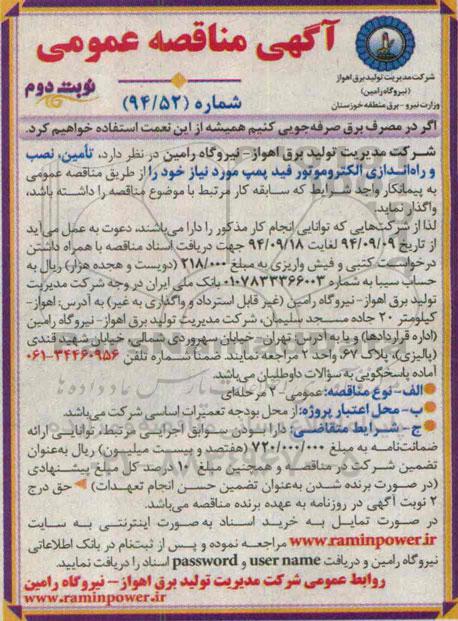 آگهی مناقصه عمومی
شرکت مدیریت تولید برق اهواز
(نیروگاه رامین)
وزارت نیرو - برق منطقه خوزستان
نوبت دوم
شماره (۹۴/۵۲)
اگر در مصرف برق صرفه‌جویی کنیم همیشه از این نعمت استفاده خواهیم کرد.
شرکت مدیریت تولید برق اهواز- نیروگاه رامین در نظر دارد، تأمین، نصب
و راه‌اندازی الکتروموتور فید پمپ مورد نیاز خود را از طریق مناقصه عمومی
به پیمانکار واجد شرایط که سابقه کار مرتبط با موضوع مناقصه را داشته باشد،
واگذار نماید.
لذا از شرکت‌هایی که توانایی انجام کار مذکور را دارا می‌باشند، دعوت به عمل می‌آید
از تاریخ ۹۴/۰۹/۰۹ لغایت ۹۴/۰۹/۱۸ جهت دریافت اسناد مناقصه با همراه داشتن
درخواست کتبی و فیش واریزی به مبلغ ۲۱۸/۰۰۰ (دویست و هجده هزار) ریال به
حساب سیبا به شماره ۰۱۰۷۸۳۳۳۶۶۰۰۳ بانک ملی ایران در وجه شرکت مدیریت
تولید برق اهواز- نیروگاه رامین (غیر قابل استرداد و واگذاری به غیر) به آدرس: اهواز-
کیلومتر ۲۰ جاده مسجد سلیمان، شرکت مدیریت تولید برق اهواز- نیروگاه رامین
(اداره قراردادها) و یا به آدرس: تهران- خیابان سهروردی شمالی، خیابان شهید قندی
(پالیزی)، پلاک ۶۷، واحد ۲ مراجعه نمایند. ضمناً شماره تلفن ۳۴۴۶۰۹۵۶-۰۶۱
آماده پاسخگویی به سؤالات داوطلبان می‌باشد.
الف- نوع مناقصه: عمومی- ۲ مرحله‌ای
ب- محل اعتبار پروژه: از محل بودجه تعمیرات اساسی شرکت می‌باشد.
ج- شرایط متقاضی: دارا بودن سوابق اجرایی مرتبط، توانایی ارائه
ضمانت‌نامه به مبلغ ۷۲۰/۰۰۰/۰۰۰ (هفتصد و بیست میلیون) ریال به‌عنوان
تضمین شرکت در مناقصه و همچنین مبلغ ۱۰ درصد کل مبلغ پیشنهادی
(در صورت برنده شدن به‌عنوان تضمین حسن انجام تعهدات) حق درج
۲ نوبت آگهی در روزنامه به عهده برنده مناقصه می‌باشد.
در صورت تمایل به خرید اسناد به صورت اینترنتی به سایت
www.raminpower.ir مراجعه نموده و پس از ثبت‌نام در بانک اطلاعاتی
نیروگاه رامین و دریافت user name و password اسناد را دریافت نمایید.
روابط عمومی شرکت مدیریت تولید برق اهواز- نیروگاه رامین
www.raminpower.ir